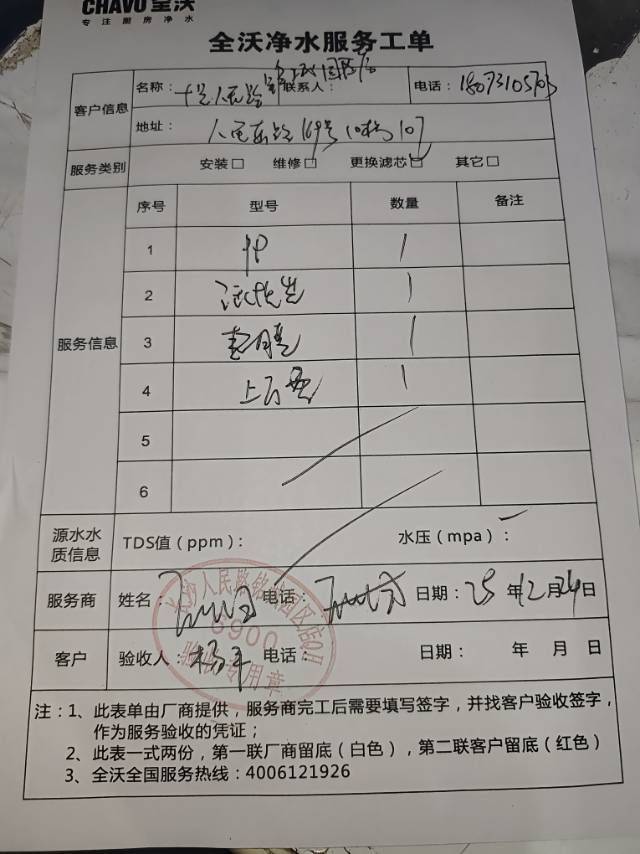 CHAVO全沃
专注厨房净水
全沃净水服务工单
客户信息 名称： 联系人： 电话：
地址：人民东路169号10栋107
服务类别 安装□ 维修□ 更换滤芯□ 其它□
服务信息 序号 型号 数量 备注
1 PP 1
2 1
3 1
4 1
5
6
源水水质信息 TDS值（ppm）： 水压（mpa）：
服务商 姓名： 电话： 日期：25年12月24日
客户 验收人：杨平 电话： 日期： 年 月 日
注：1、此表单由厂商提供，服务商完工后需要填写签字，并找客户验收签字，
作为服务验收的凭证；
2、此表一式两份，第一联厂商留底（白色），第二联客户留底（红色）
3、全沃全国服务热线：4006121926